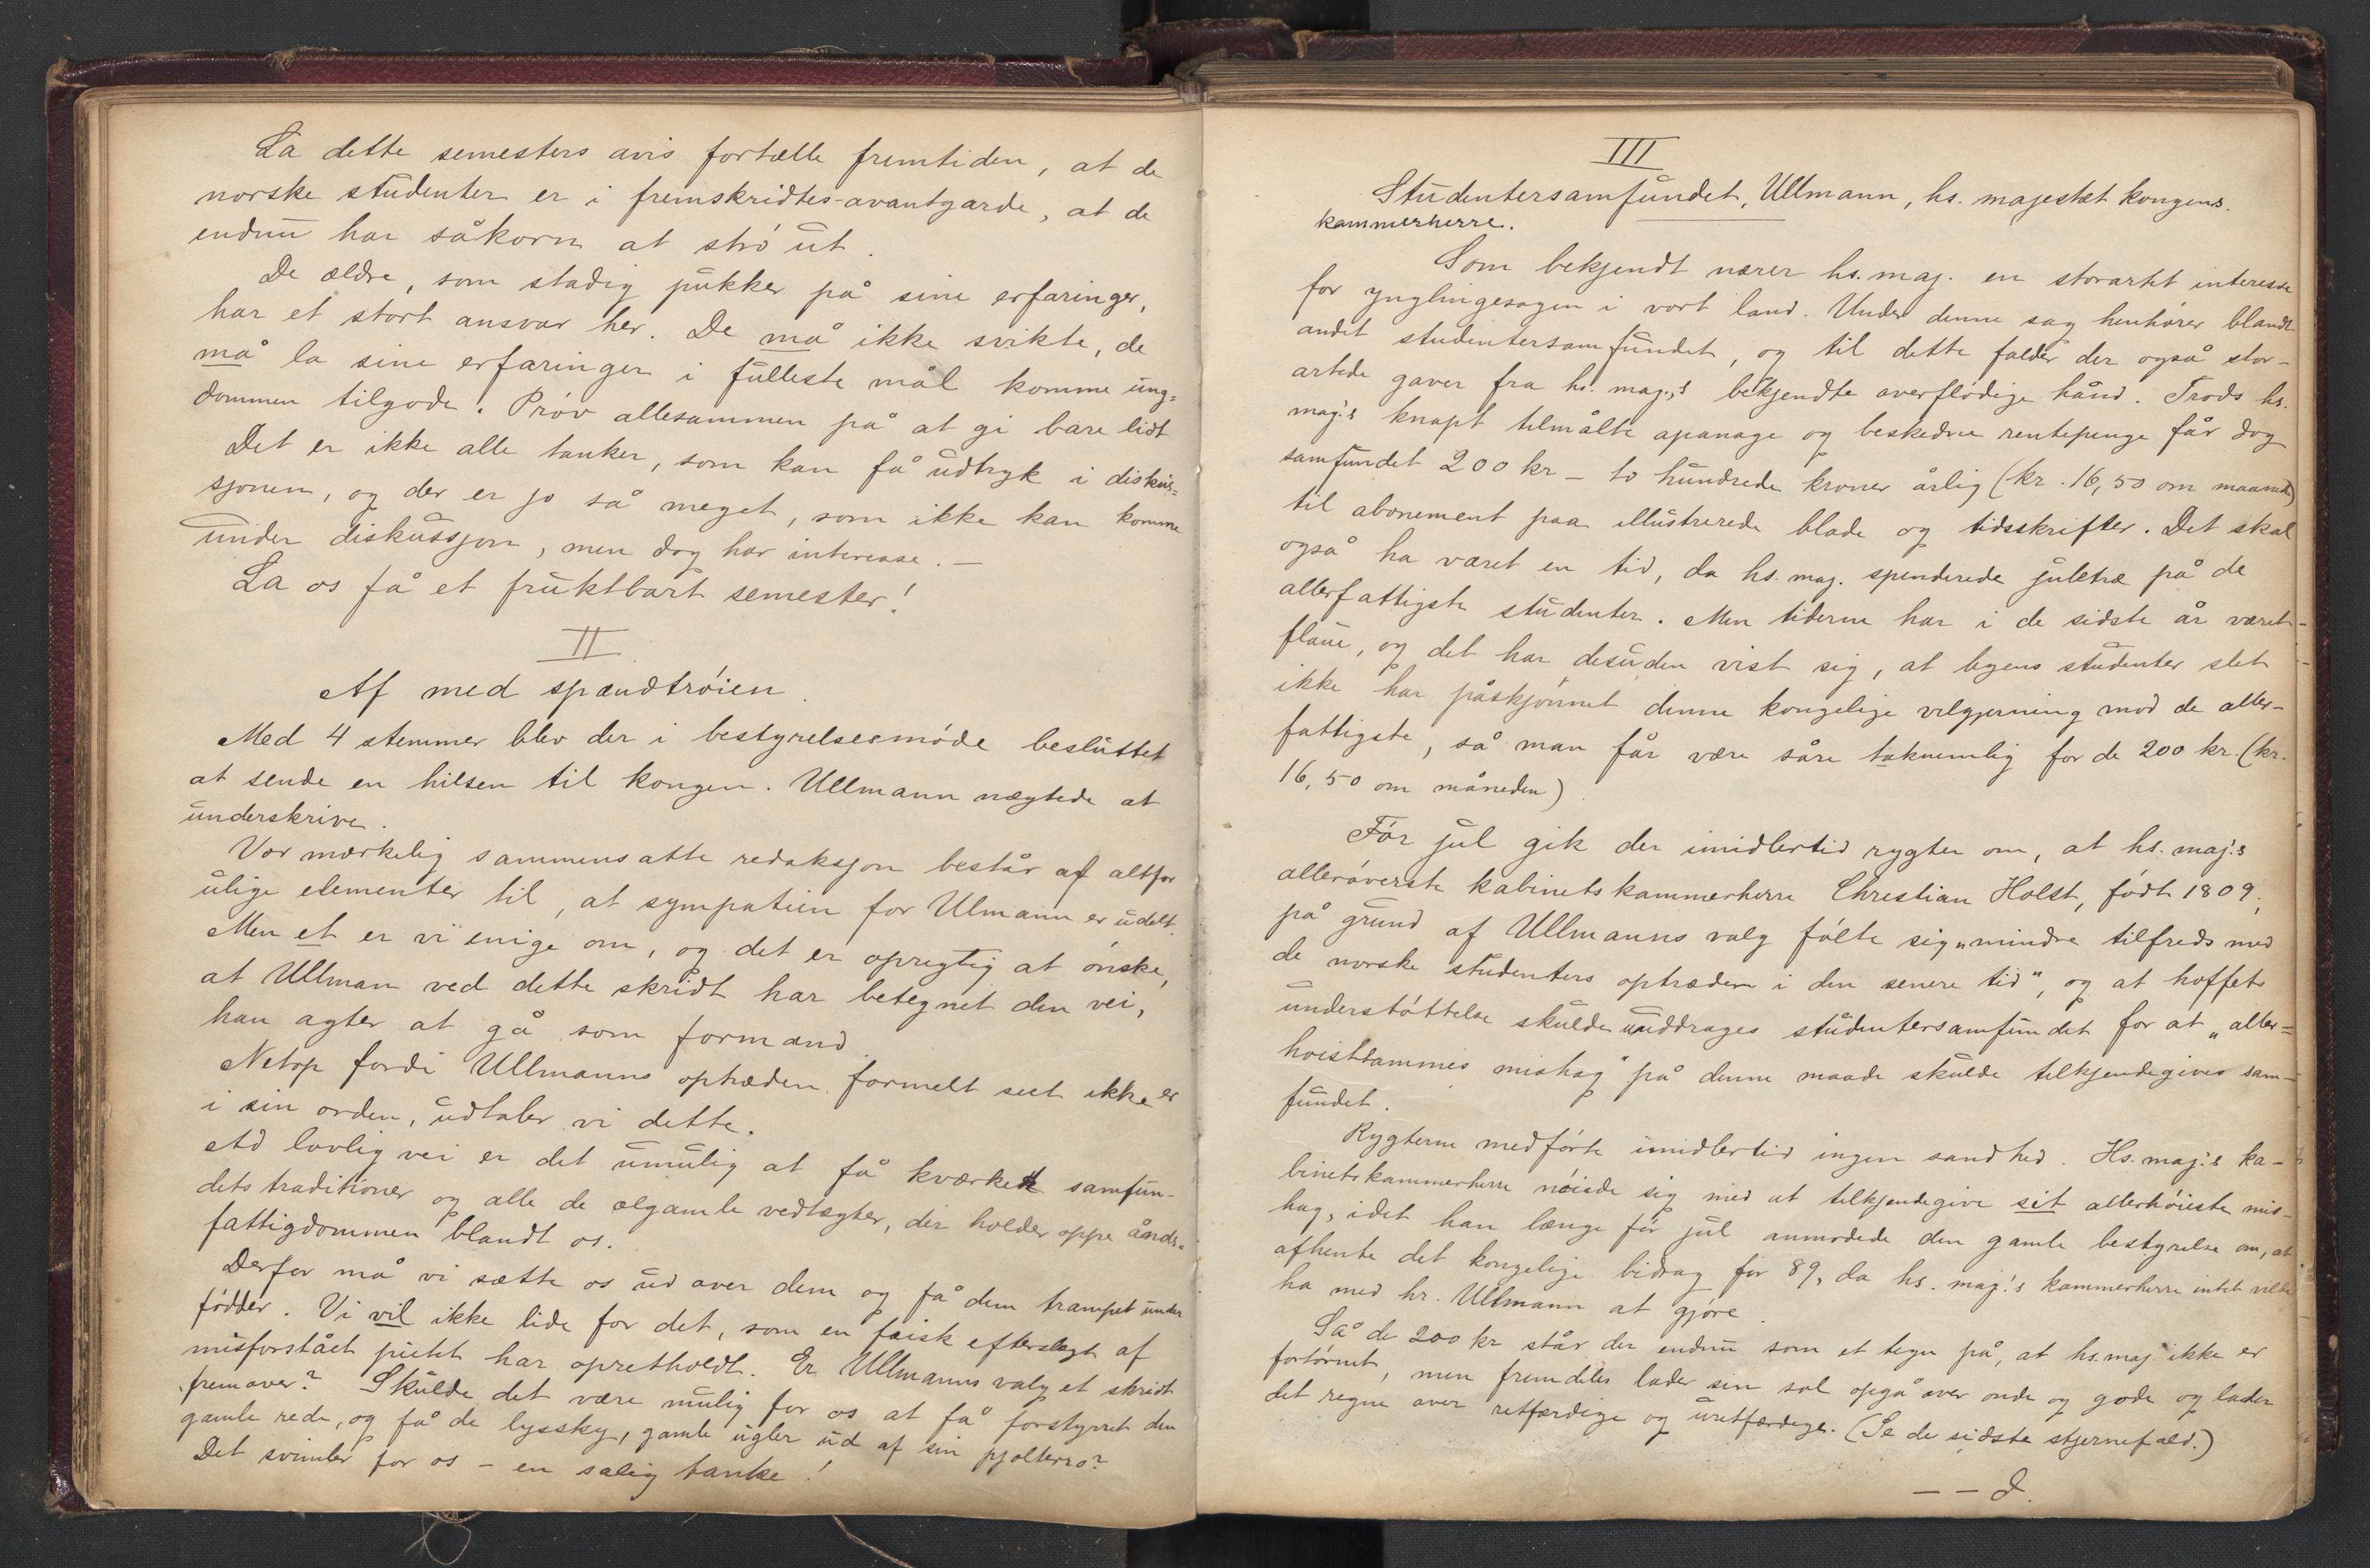 La dette semesters avis fortælle fremtiden, at de
norske studenter er i fremskridtes-avantgarde, at de
endnu har såkorn at strö ut.
De ældre, som stadig pukker på sine erfaringer,
har et stort ansvar her. De må ikke svikte, de
må la sine erfaringer i fulleste mål komme ung=
dommen tilgode. Pröv allesammen på at gi bare lidt
Det er ikke alle tanker, som kan få udtryk i diskus=
sjonen, og der er jo så meget, som ikke kan komme
under diskussjon, men dog har interesse. —
La os få et fruktbart semester!
II
Af med spændtröien.
Med 4 stemmer blev der i bestyrelsesmöde besluttet
at sende en hilsen til kongen. Ullmann nægtede at
underskrive.
Vor mærkelig sammensatte redaksjon består af altfor
ulige elementer til, at sympatien for Ulmann er udelt.
Men et er vi enige om, og det er oprigtig at önske,
at Ullman ved dette skridt har betegnet den vei,
han agter at gå som formand.
Netop fordi Ullmanns optræden formelt seet ikke er
i sin orden, udtaler vi dette.
Ad lovlig vei er det umulig at få kværket samfun-
dets traditioner og alle de ælgamle vedtægter, der holder oppe ånds=
fattigdommen blandt os.
Derfor må vi sætte os ud over dem og få dem trampet under
födder. Vi vil ikke lide for det, som en feisk efterslægt af
misforstået pietet har opretholdt. Er Ullmanns valg et skridt
fremover? Skulde det være mulig for os at få forstyrret den
gamle rede, og få de lyssky, gamle ugler ud af sin pjolterro?
Det svimler for os – en salig tanke!
III
Studentersamfundet, Ullmann, hs. majestæt kongens
kammerherre.
Som bekjendt nærer hs. maj. en storartet interesse
for ynglingesagen i vort land. Under denne sag henhörer blandt
andet studentersamfundet, og til dette falder der også stor-
artede gaver fra hs. maj.'s bekjendte overflödige hånd. Trods hs.
maj.'s knapt tilmålte apanage og beskedne rentepenge får dog
samfundet 200 kr – to hundrede kroner årlig (kr. 16,50 om maaneden)
til abonement paa illustrerede blade og tidsskrifter. Det skal
også ha været en tid, da hs. maj. spenderede juletræ på de
allerfattigste studenter. Men tiderne har i de sidste år været
flaue, og det har desuden vist sig, at byens studenter slet
ikke har påskjönnet denne kongelige velgjerning mod de aller-
fattigste, så man får være såre taknemlig for de 200 kr. (kr.
16,50 om måneden).
För jul gik der imidlertid rygter om, at hs. maj.'s
alleröverste kabinetskammerherre Christian Holst, födt 1809,
på grund af Ullmanns valg fölte sig „mindre tilfreds med
de norske studenters optræden i den senere tid", og at hoffets
understöttelse skulde unddrages studentersamfundet for at „aller=
höistsammes mishag" på denne maade skulde tilkjendegives sam-
fundet.
Rygterne medförte imidlertid ingen sandhed. Hs. maj.'s ka-
binetskammerherre nöiede sig med at tilkjendegive sit allerhöieste mis-
hag, idet han længe för jul anmodede den gamle bestyrelse om, at
afhente det kongelige bidrag for 89, da hs. maj.'s kammerherre intet vilde
ha med hr. Ullmann at gjöre.
Så de 200 kr står der endnu som et tegn på, at hs. maj. ikke er
fortörnet, men fremdeles lader sin sol opgå over onde og gode og lader
det regne over retfærdige og uretfærdige. (Se de sidste stjernefald.)
— — J.